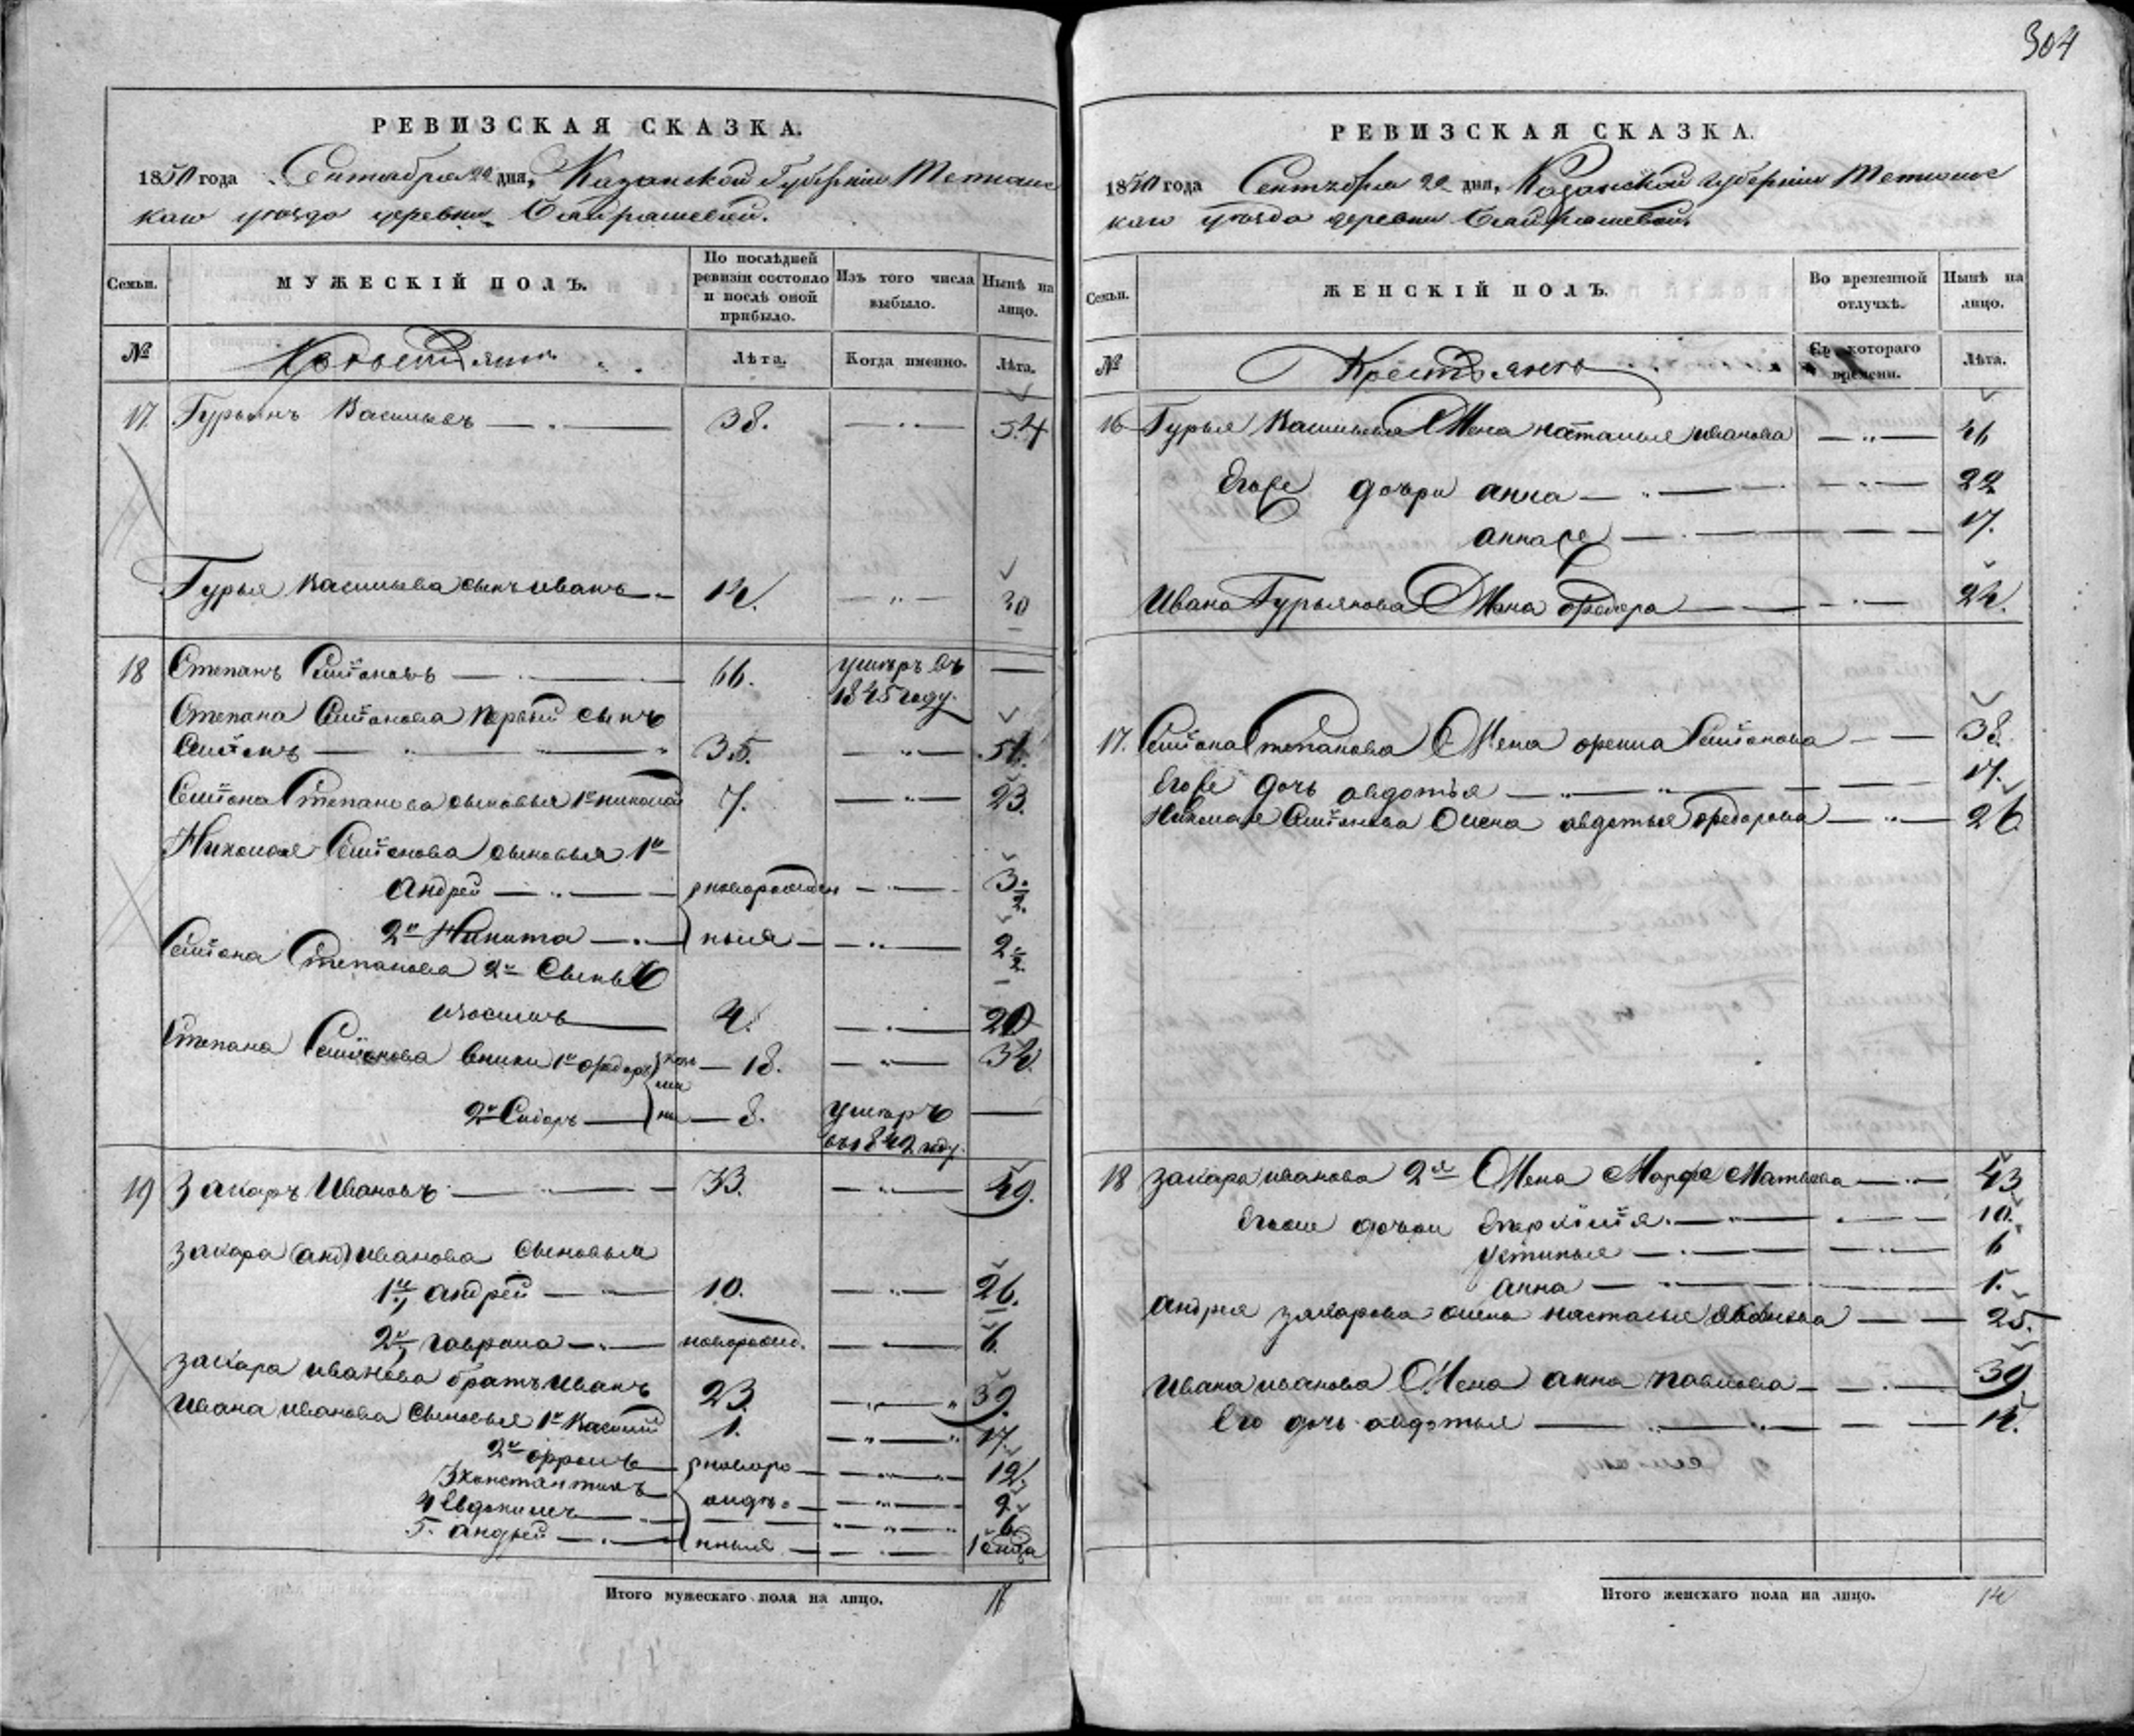 304
РЕВИЗСКАЯ СКАЗКА.
1850 года Сентября 22 дня, Казанской Губернии Тетюшс
каго уезда деревни
Семьи.
МУЖЕСКІЙ ПОЛЪ.
По послѣдней ревизіи состояло и послѣ оной прибыло.
Изъ того числа выбыло.
Нынѣ на лицо.
№
Лѣта.
Когда именно.
Лѣта.
17 Гурьянъ Васильевъ 38. 54
Гурья Васильева сынъ Иванъ 14. 30
18 Степанъ Семіоновъ 66. умеръ въ
1845 году.
Степана Семіонова первый сынъ
Семіонъ 35. 51.
Семіона Степанова сыновья 1й Николай 7. 23.
Николая Семіонова сыновья 1й
Андрей новорожден 3
2й Никита ныя 2 1/2
Семіона Степанова 2й сынъ
4. 20
Степана Семіонова внуки 1й Федоръ 18. 34
2й Сидоръ 8. умеръ
въ 1842 году.
19 Захаръ Ивановъ 33. 49.
Захара Иванова сыновья
1й Андрей 10. 26.
2й Гаврила новорожд. 6.
Захара Иванова братъ Иванъ 23. 39.
Ивана Иванова сыновья 1й Василий 1. 17.
2й новоро 12.
3 Константинъ
4 Евдокимъ
5. Андрей нныя
Итого мужескаго пола на лицо. 18
РЕВИЗСКАЯ СКАЗКА.
1850 года Сентября 22 дня, Казанской Губернии Тетюшс
каго уезда деревни
Семьи.
ЖЕНСКІЙ ПОЛЪ.
Во временной отлучкѣ.
Нынѣ на лицо.
№
Съ котораго времени.
Лѣта.
16 Гурья Васильева жена Наталья Иванова 46
Егоже дочери Анна 22
Анна же 17.
Ивана Гурьянова жена Федора 24.
17. Семіона Степанова жена Орена Семіонова 38.
Егоже дочь Авдотья 17.
Николая Семіонова жена Авдотья Федорова 26
18 Захара Иванова 2я жена Марфа Матвева 43
дочери 10.
Устинья 6
Анна 1.
Андрея Захарова жена Настасья 25.
Ивана Иванова жена Анна Павлова 39
Его дочь Авдотья 14.
Итого женскаго пола на лицо. 14